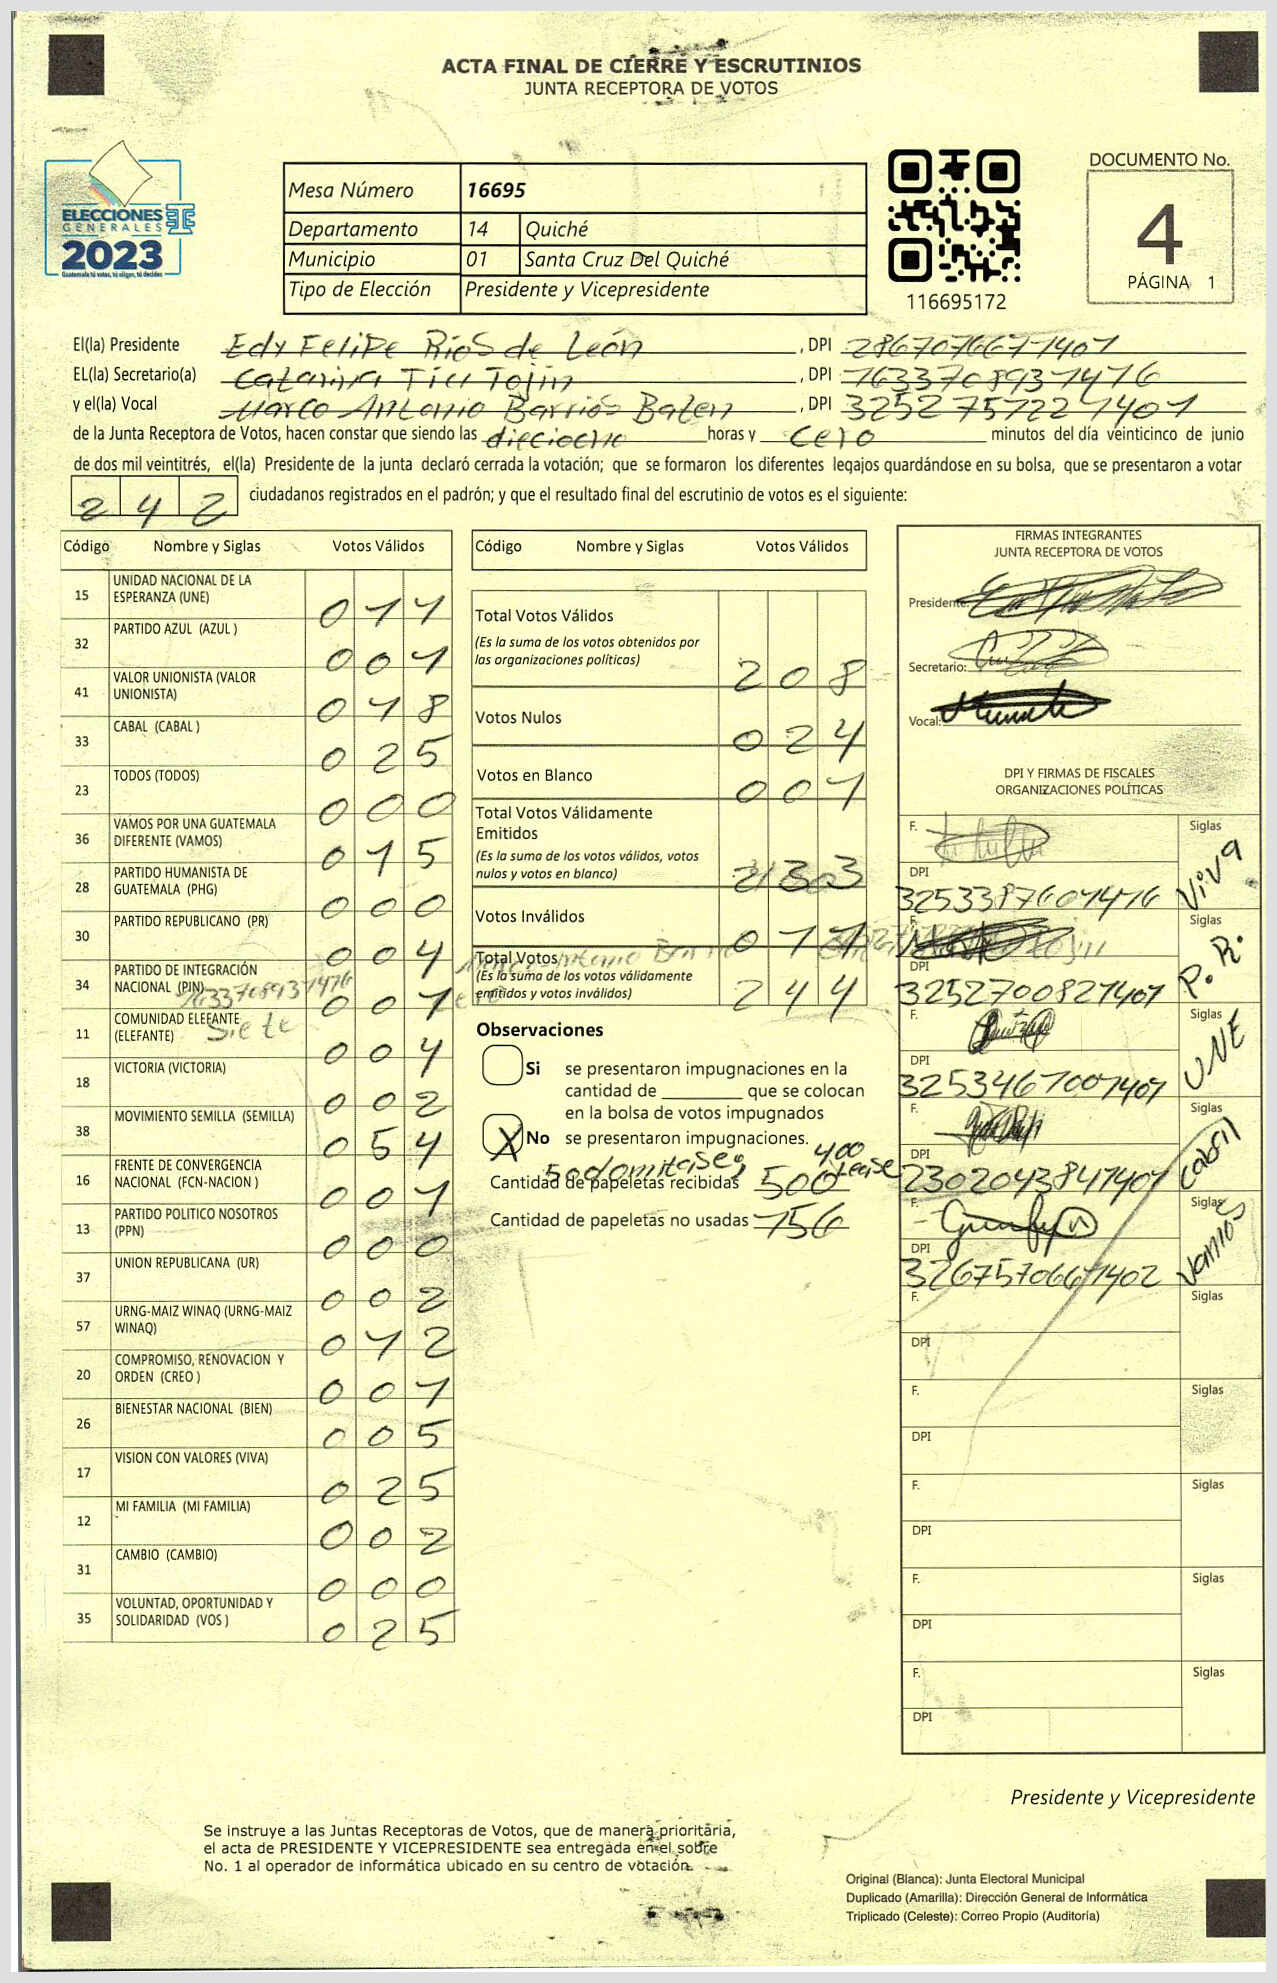 ACTA FINAL DE CIERRE Y ESCRUTINIOS
JUNTA RECEPTORA DE VOTOS
ELECCIONES
GENERALES
2023
Guatemala tú votas, tú eliges, tú decides
Mesa Número 16695
Departamento 14 Quiché
Municipio 01 Santa Cruz Del Quiché
Tipo de Elección Presidente y Vicepresidente
116695172
DOCUMENTO No.
4
PÁGINA 1
El(la) Presidente Edy Felipe Rios de León, DPI 2867076671401
EL(la) Secretario(a) Catarina Tiu Tojin, DPI 1633708931416
y el(la) Vocal Marco Antonio Barrios Baten, DPI 3252757221401
de la Junta Receptora de Votos, hacen constar que siendo las dieciocho horas y cero minutos del día veinticinco de junio
de dos mil veintitrés, el(la) Presidente de la junta declaró cerrada la votación; que se formaron los diferentes legajos guardándose en su bolsa, que se presentaron a votar
242 ciudadanos registrados en el padrón; y que el resultado final del escrutinio de votos es el siguiente:
Código Nombre y Siglas Votos Válidos
15 UNIDAD NACIONAL DE LA ESPERANZA (UNE) 011
32 PARTIDO AZUL (AZUL ) 001
41 VALOR UNIONISTA (VALOR UNIONISTA) 018
33 CABAL (CABAL ) 025
23 TODOS (TODOS) 000
36 VAMOS POR UNA GUATEMALA DIFERENTE (VAMOS) 015
28 PARTIDO HUMANISTA DE GUATEMALA (PHG) 000
30 PARTIDO REPUBLICANO (PR) 004
34 PARTIDO DE INTEGRACIÓN NACIONAL (PIN) 001
11 COMUNIDAD ELEFANTE (ELEFANTE) 004
siete
18 VICTORIA (VICTORIA) 002
38 MOVIMIENTO SEMILLA (SEMILLA) 054
16 FRENTE DE CONVERGENCIA NACIONAL (FCN-NACION ) 001
13 PARTIDO POLITICO NOSOTROS (PPN) 000
37 UNION REPUBLICANA (UR) 002
57 URNG-MAIZ WINAQ (URNG-MAIZ WINAQ) 012
20 COMPROMISO, RENOVACION Y ORDEN (CREO ) 001
26 BIENESTAR NACIONAL (BIEN) 005
17 VISION CON VALORES (VIVA) 025
12 MI FAMILIA (MI FAMILIA) 002
31 CAMBIO (CAMBIO) 000
35 VOLUNTAD, OPORTUNIDAD Y SOLIDARIDAD (VOS ) 025
Código Nombre y Siglas Votos Válidos
Total Votos Válidos
(Es la suma de los votos obtenidos por las organizaciones políticas) 208
Votos Nulos 024
Votos en Blanco 001
Total Votos Válidamente Emitidos
(Es la suma de los votos válidos, votos nulos y votos en blanco) 233
Votos Inválidos 011
Total Votos
(Es la suma de los votos válidamente emitidos y votos inválidos) 244
Observaciones
Si se presentaron impugnaciones en la
cantidad de ________ que se colocan
en la bolsa de votos impugnados
X No se presentaron impugnaciones.
400
Cantidad de papeletas recibidas 500 lease
Cantidad de papeletas no usadas 156
FIRMAS INTEGRANTES
JUNTA RECEPTORA DE VOTOS
Presidente:
Secretario:
Vocal:
DPI Y FIRMAS DE FISCALES
ORGANIZACIONES POLÍTICAS
F. Siglas Viva
DPI 3253387601416
F. Siglas P.R.
DPI 3252700821401
F. Siglas UNE
DPI 3253467001401
F. Siglas Cabal
DPI 2302043841401
F. Siglas Vamos
DPI 3267570661402
F. Siglas
DPI
F. Siglas
DPI
F. Siglas
DPI
F. Siglas
DPI
F. Siglas
DPI
Presidente y Vicepresidente
Se instruye a las Juntas Receptoras de Votos, que de manera prioritaria,
el acta de PRESIDENTE Y VICEPRESIDENTE sea entregada en el sobre
No. 1 al operador de informática ubicado en su centro de votación.
Original (Blanca): Junta Electoral Municipal
Duplicado (Amarilla): Dirección General de Informática
Triplicado (Celeste): Correo Propio (Auditoría)